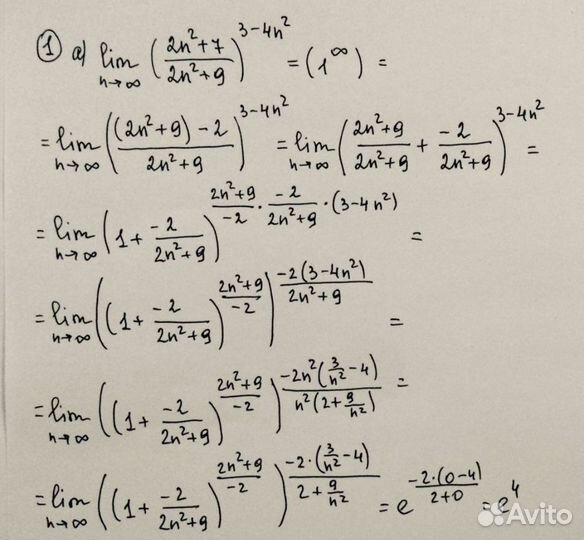 ① a) lim n→∞ ((2n²+7)/(2n²+9))^(3-4n²) = (1^∞) =
= lim n→∞ (((2n²+9)-2)/(2n²+9))^(3-4n²) = lim n→∞ ((2n²+9)/(2n²+9) + (-2)/(2n²+9))^(3-4n²) =
= lim n→∞ (1 + (-2)/(2n²+9))^((2n²+9)/(-2) · (-2)/(2n²+9) · (3-4n²)) =
= lim n→∞ ((1 + (-2)/(2n²+9))^((2n²+9)/(-2)))^((-2(3-4n²))/(2n²+9)) =
= lim n→∞ ((1 + (-2)/(2n²+9))^((2n²+9)/(-2)))^((-2n²(3/n²-4))/(n²(2+9/n²))) =
= lim n→∞ ((1 + (-2)/(2n²+9))^((2n²+9)/(-2)))^((-2·(3/n²-4))/(2+9/n²)) = e^((-2·(0-4))/(2+0)) = e⁴
Avito